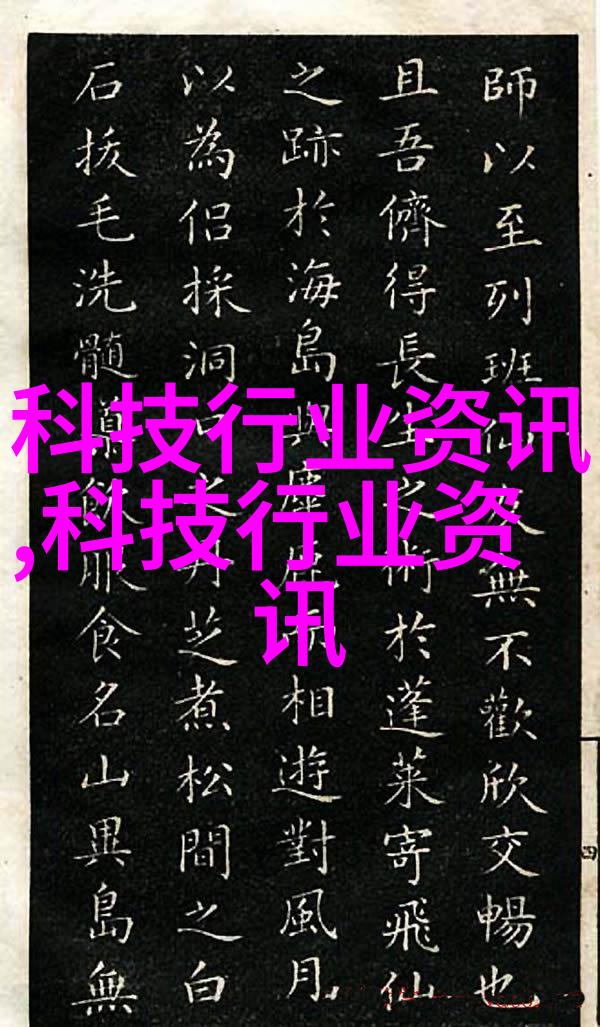 師以至列班仙無不歡欣交暢也
且吾儕得長生之術於蓬萊寄飛仙
之跡於海島與麋鹿相遊對風月
以為侶採洞芝煮松間之白
石拔毛洗髓飲服食名山異島無
科技行业资讯
,科技行业资
讯
四